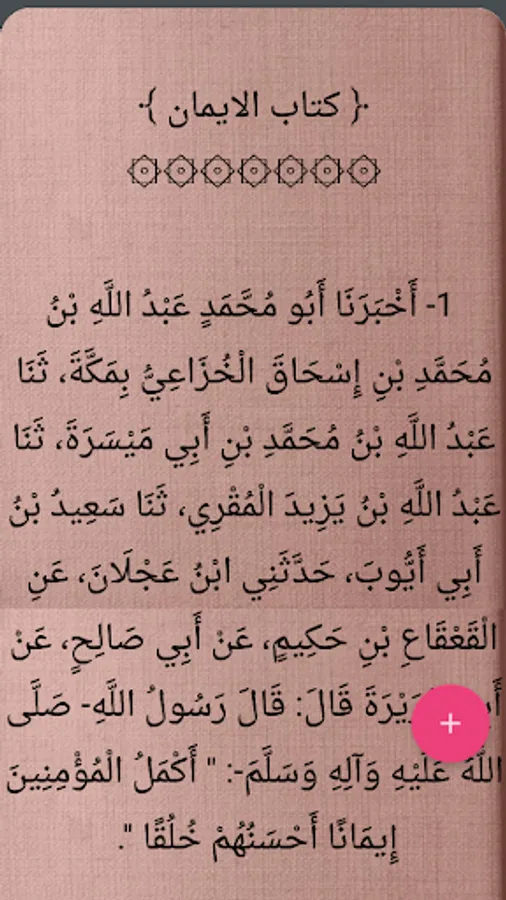 ﴿ كتاب الايمان ﴾
1- أَخْبَرَنَا أَبُو مُحَّمَدٍ عَبْدُ اللَّهِ بْنُ
مُحَمَّدِ بْنِ إِسْحَاقَ الْخُزَاعِيُّ بِمَكَّةَ، ثَنَا
عَبْدُ اللَّهِ بْنُ مُحَمَّدِ بْنِ أَبِي مَيْسَرَةَ، ثَنَا
عَبْدُ اللَّهِ بْنُ يَزِيدَ الْمُقْرِي، ثَنَا سَعِيدُ بْنُ
أَبِي أَيُّوبَ، حَدَّثَنِي ابْنُ عَجْلَانَ، عَنِ
الْقَعْقَاعِ بْنِ حَكِيمٍ، عَنْ أَبِي صَالِحٍ، عَنْ
قَالَ: قَالَ رَسُولُ اللَّهِ- صَلَّى
اللَّهُ عَلَيْهِ وَآلِهِ وَسَلَّمَ-: " أَكْمَلُ الْمُؤْمِنِينَ
إِيمَانًا أَحْسَنُهُمْ خُلُقًا ".
+